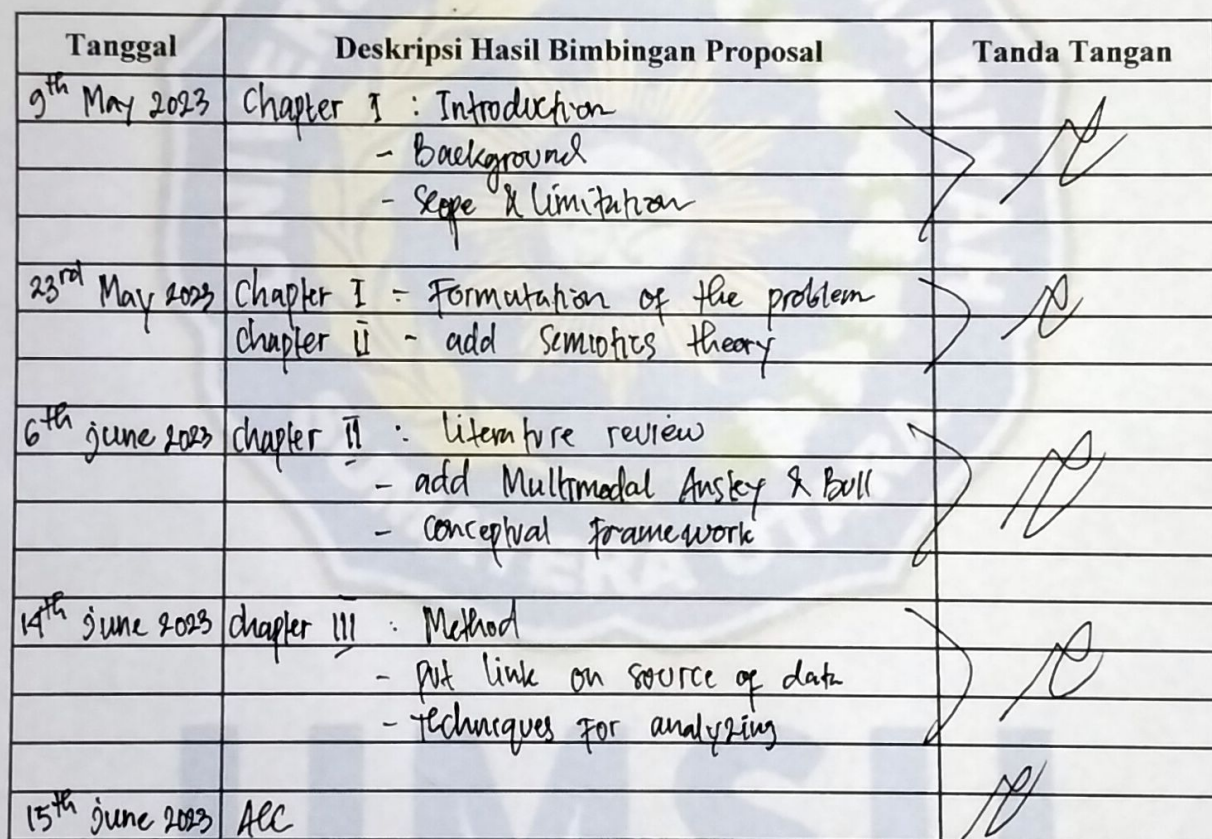 Tanggal Deskripsi Hasil Bimbingan Proposal Tanda Tangan
9th May 2023 Chapter I : Introduction
- Background
- Scope & limitation
23rd May 2023 Chapter I - Formulation of the problem
Chapter II - add Semiotics theory
6th june 2023 chapter II : literature review
- add Multimodal Anstey & Bull
- conceptual framework
14th june 2023 chapter III : Method
- put link on source of data
- techniques for analyzing
15th june 2023 ACC
UMSU